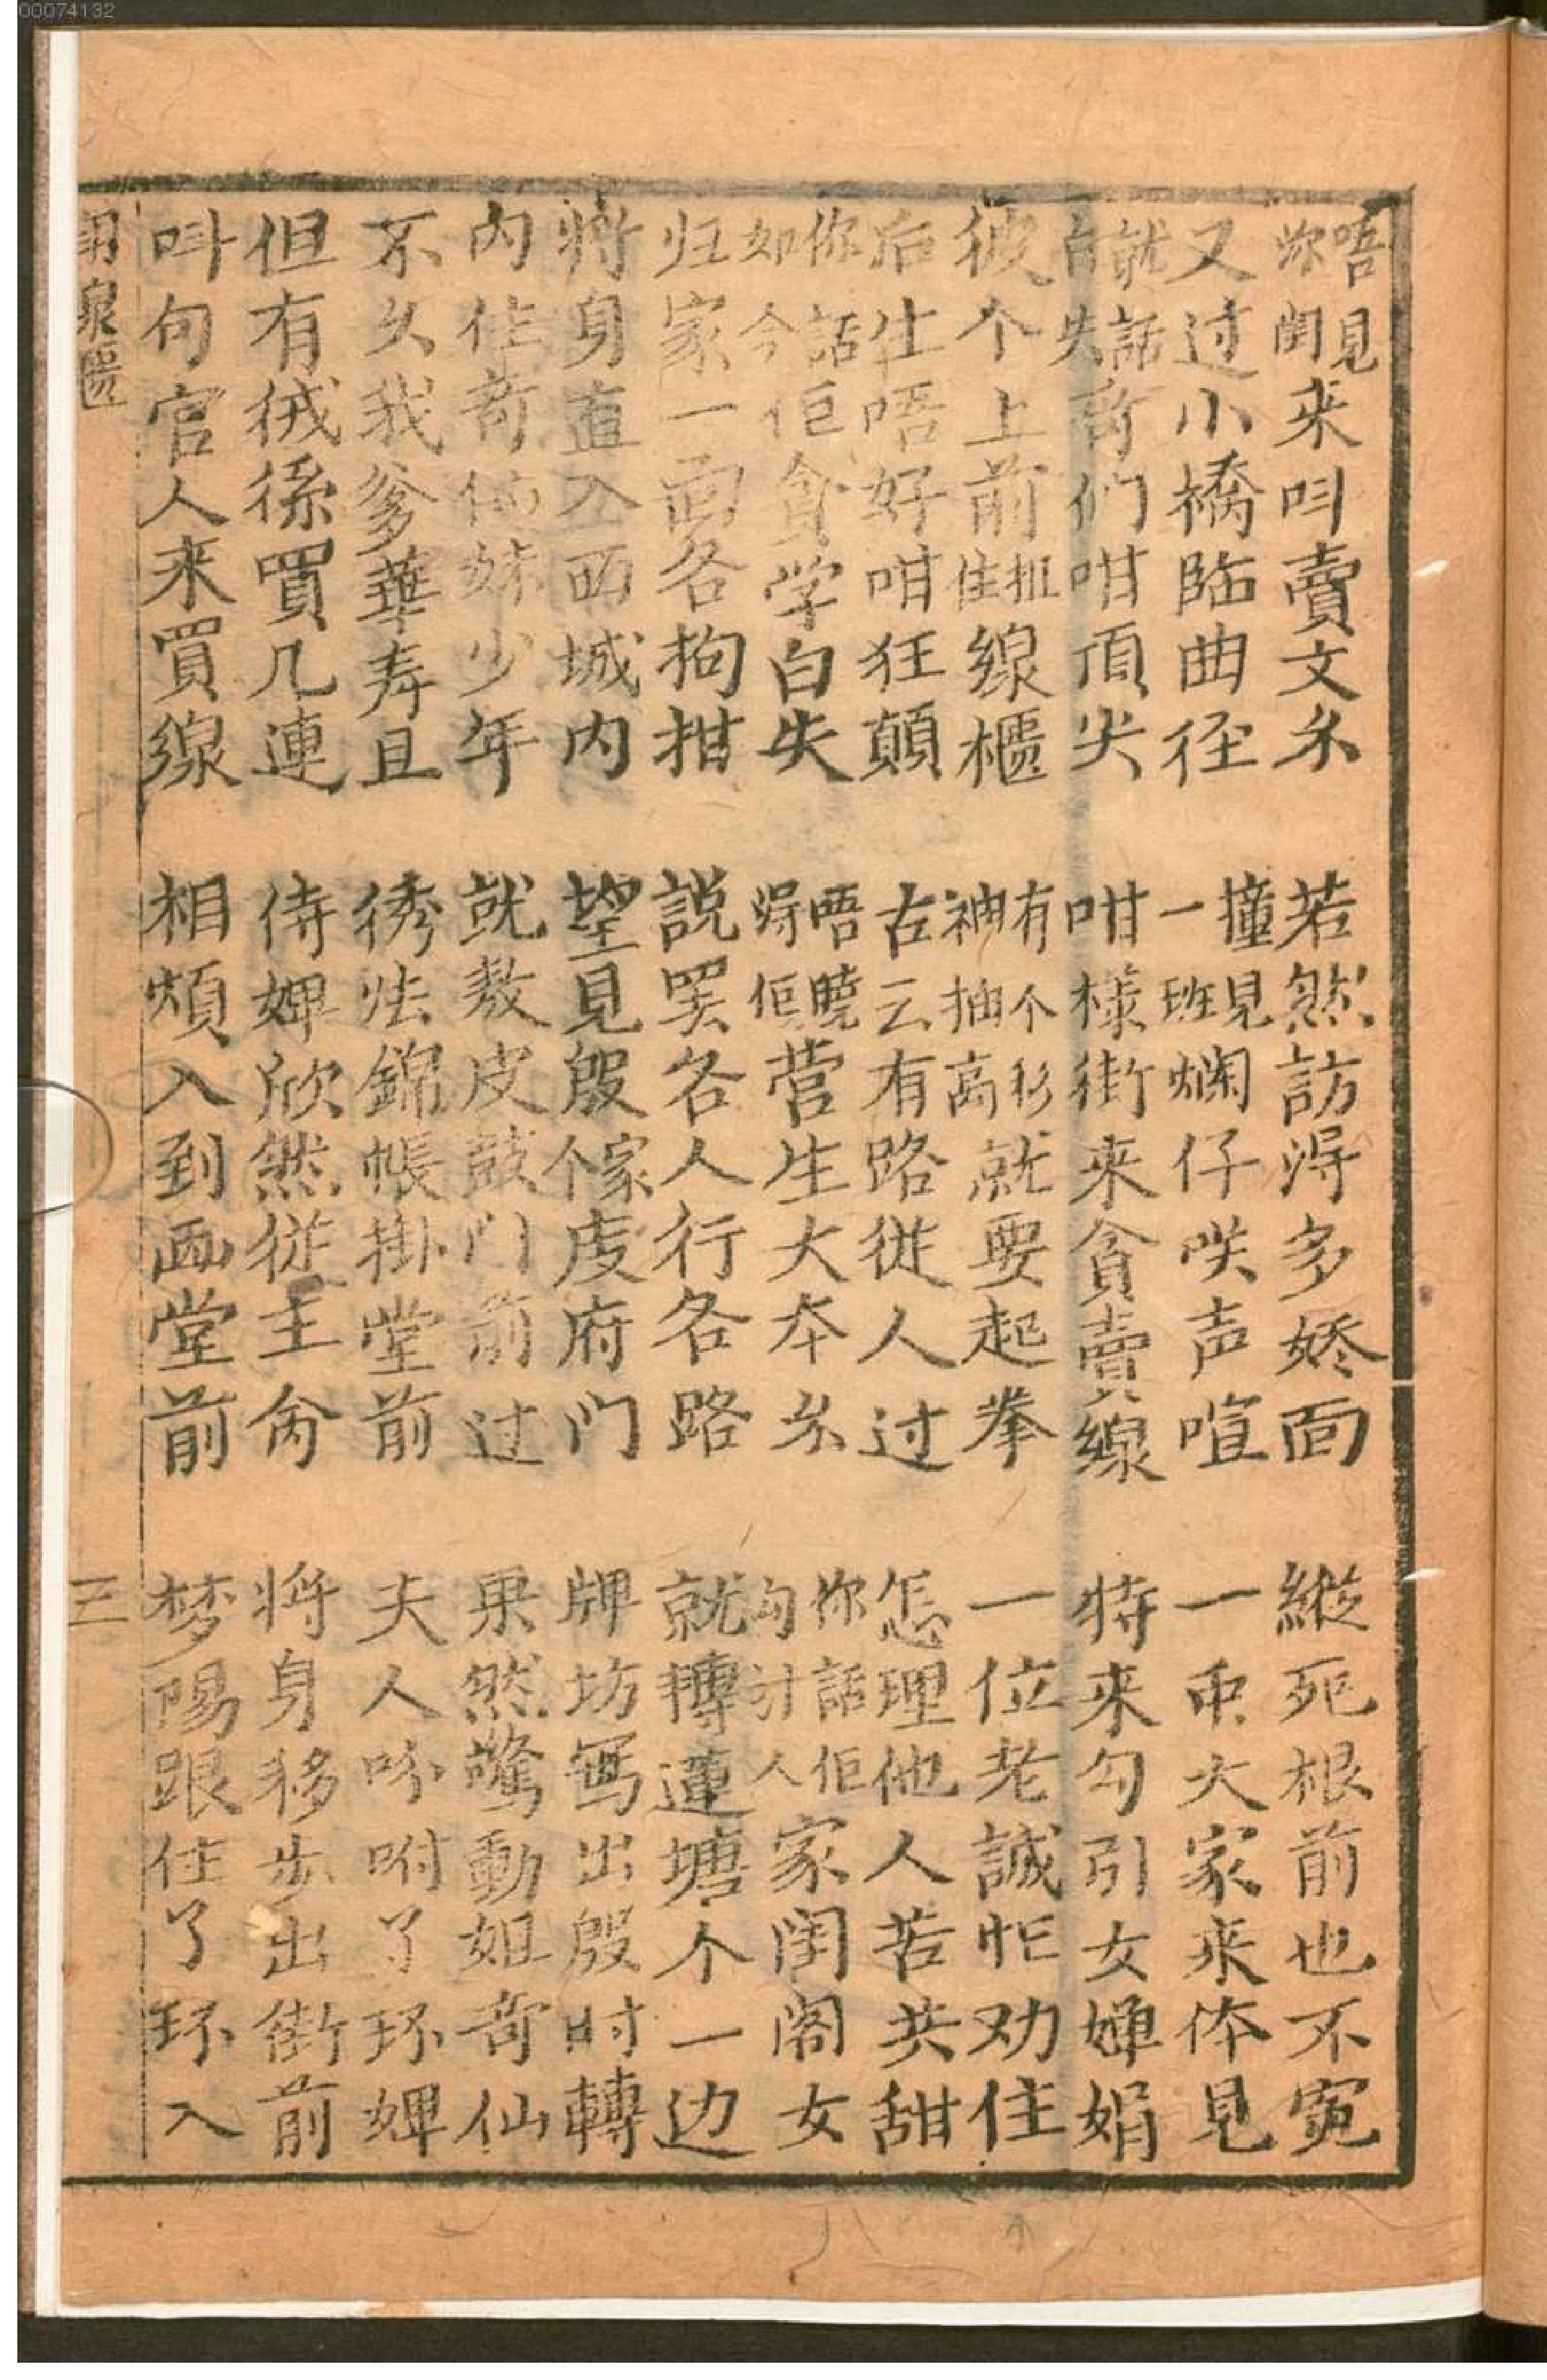 00074132
唔見你閨来呌賣文糸 若然訪得多嬌面 縱死根前也不寃
又过小橋臨曲径 撞見一班爛仔咲声喧 一帀大家来体見
就話白失奇們咁頂尖 咁樣街来貪賣線 特来勾引女嬋娟
彼个上前扯住線櫃 有个衫袖抽高就要起拳 一位老誠忙劝住
后生唔好咁狂顛 古云有路従人过 怎理他人苦共甜
你話如今佢貪学白失 唔曉得佢营生大本糸 你話佢勾引人家閨阁女
归家一面各拘拑 說罢各人行各路 就轉蓮塘个一边
將身直入西城内 望見殷家虔府門 牌坊寫出殷时轉
内住奇仙妹少年 就敖皮鼓门前过 果然驚動姐奇仙
不久我爹華寿且 绣庒錦帳掛堂前 夫人吩咐了环婢
但有絨絲買几連 侍婢欣然従主命 将身移步出街前
呌句官人来買線 相煩入到画堂前 梦陽跟住了环入
三